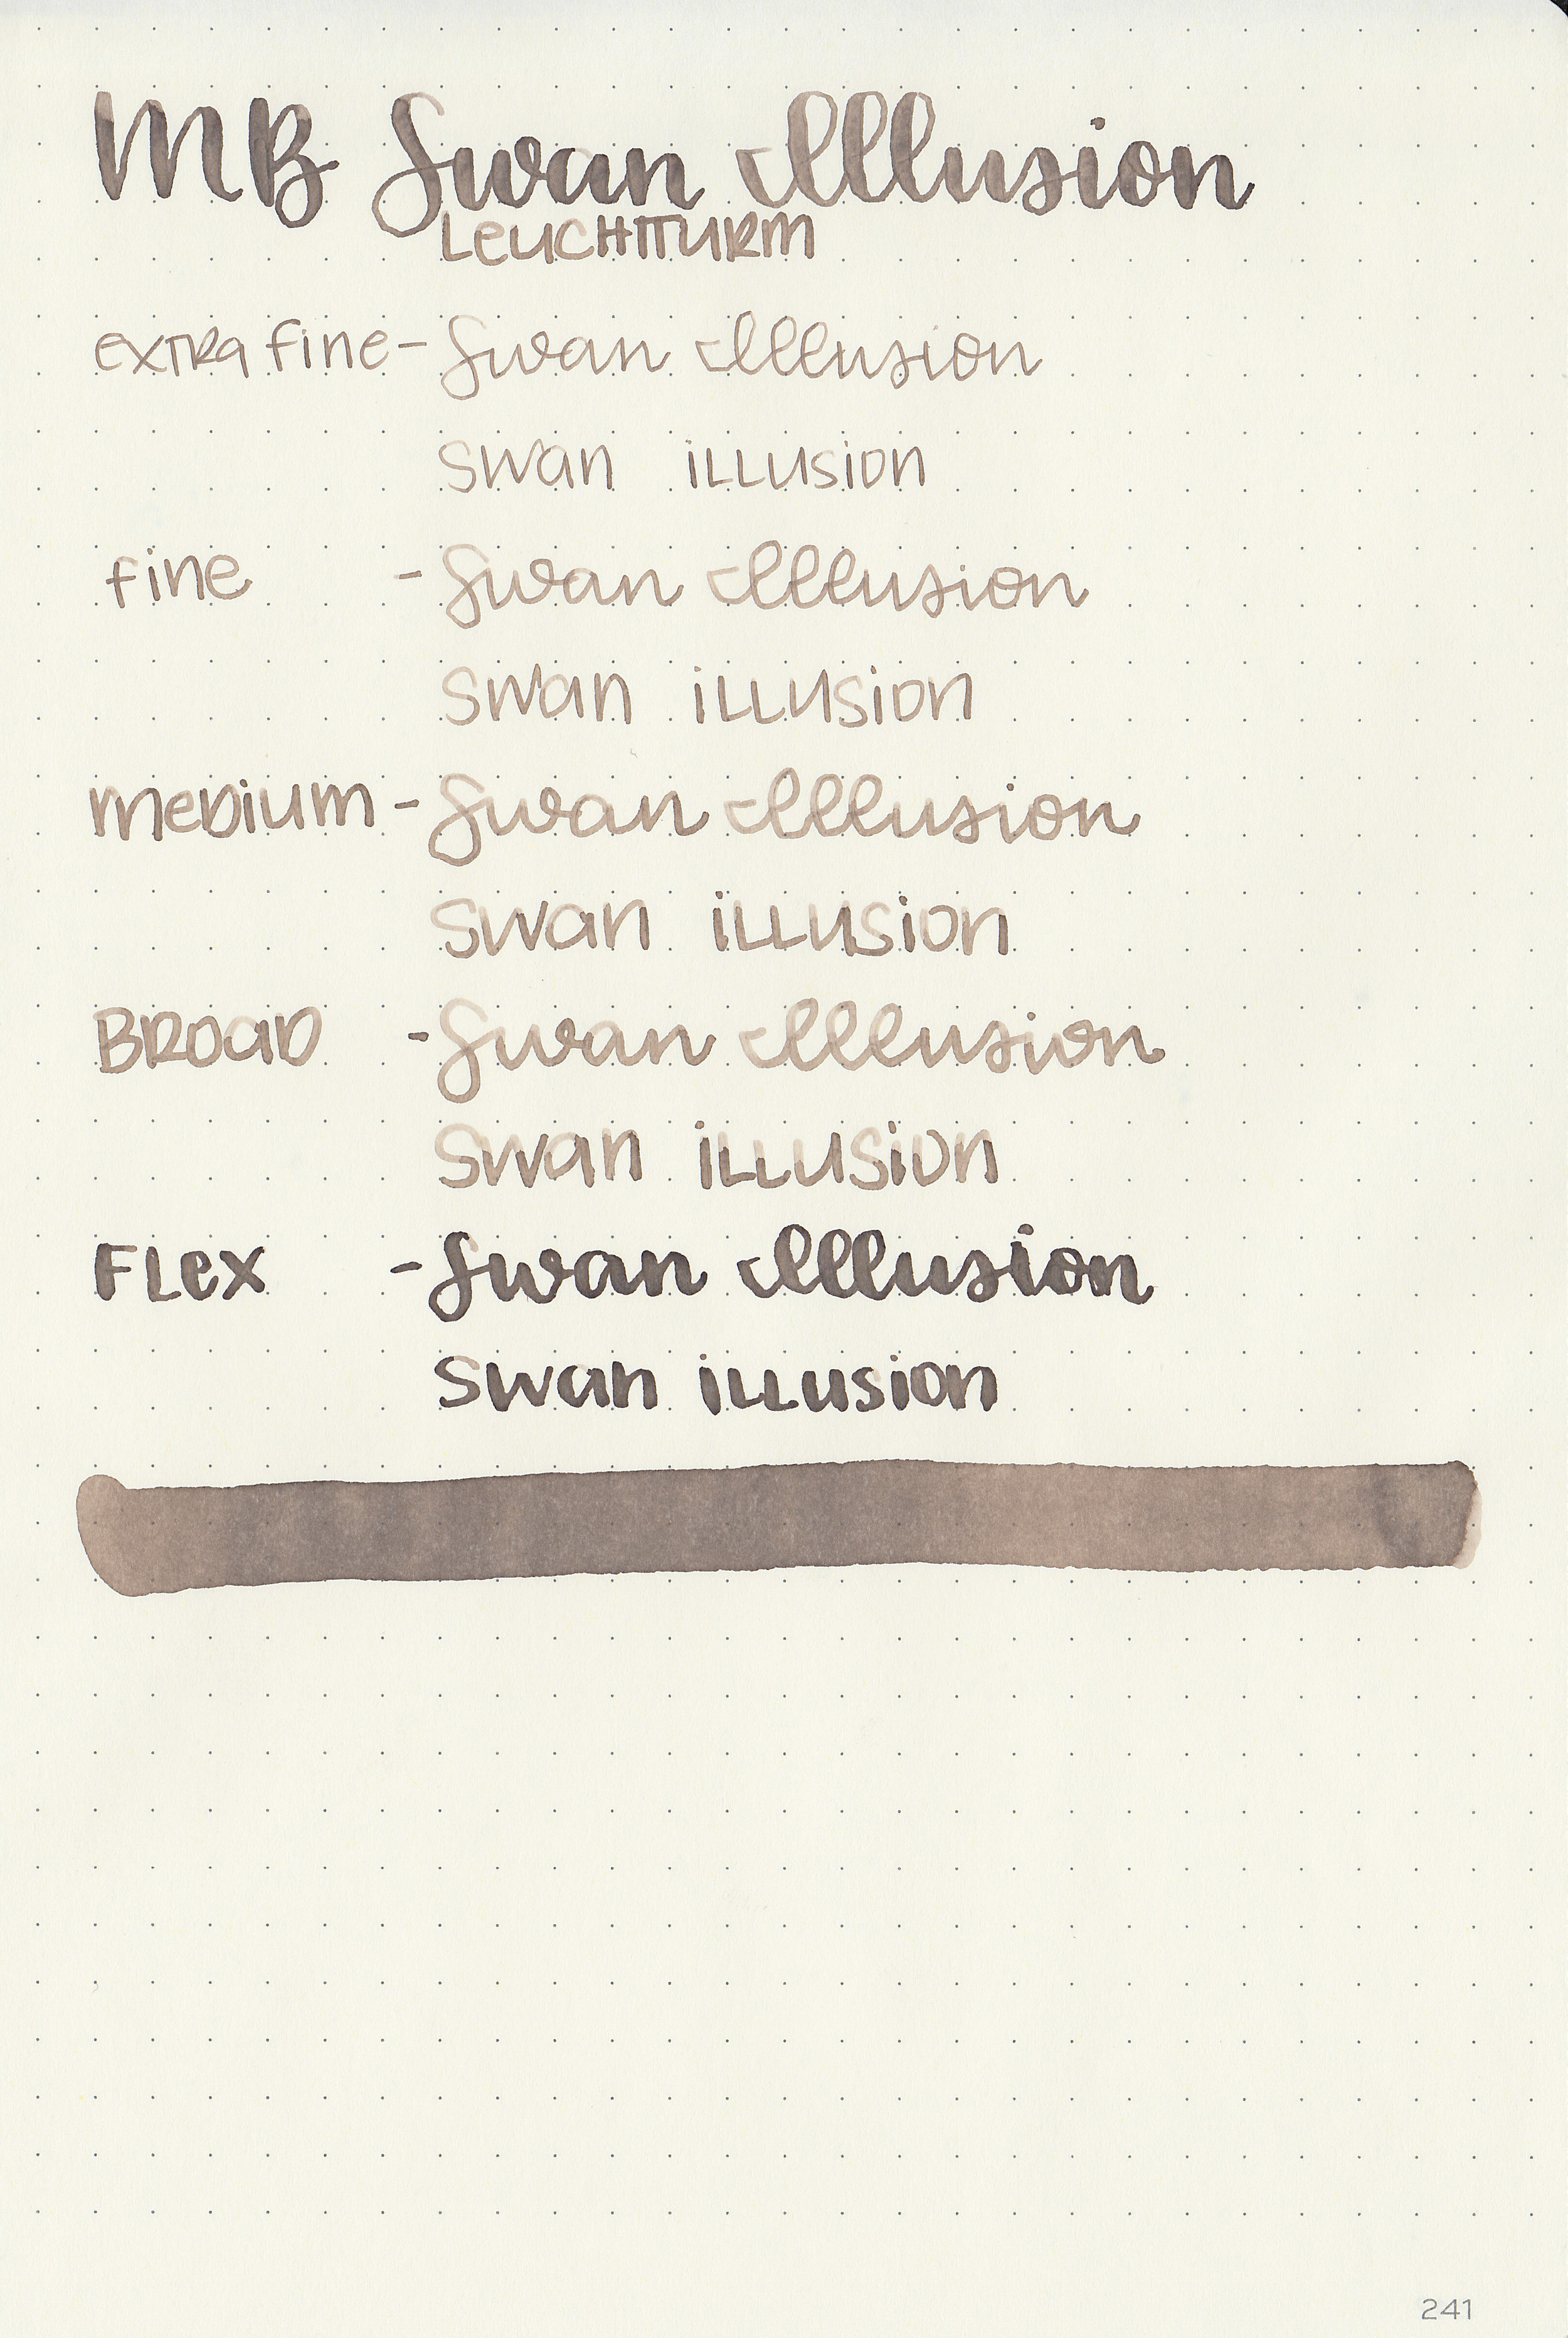 MB Swan Illusion
LEUCHTTURM
EXTRA FINE - Swan Illusion
SWAN ILLUSION
FINE - Swan Illusion
SWAN ILLUSION
MEDIUM - Swan Illusion
SWAN ILLUSION
BROAD - Swan Illusion
SWAN ILLUSION
FLEX - Swan Illusion
SWAN ILLUSION
241